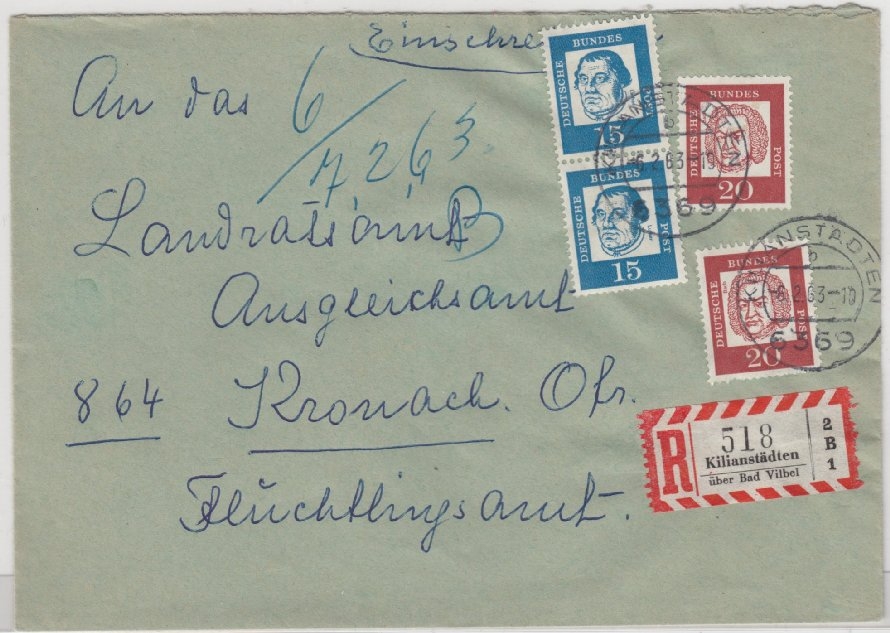 Einschre
An das
6
7.2.63.
B
Landratsamt
Ausgleichsamt
864 Kronach. Ofr.
Flüchtlingsamt.
DEUTSCHE BUNDES POST
15
DEUTSCHE BUNDES POST
15
DEUTSCHE BUNDES POST
20
DEUTSCHE BUNDES POST
Bach
20
KILIANSTÄDTEN
b
-6.2.63-19
6369
KILIANSTÄDTEN
b
-6.2.63-19
6369
R 518 2
Kilianstädten B
über Bad Vilbel 1